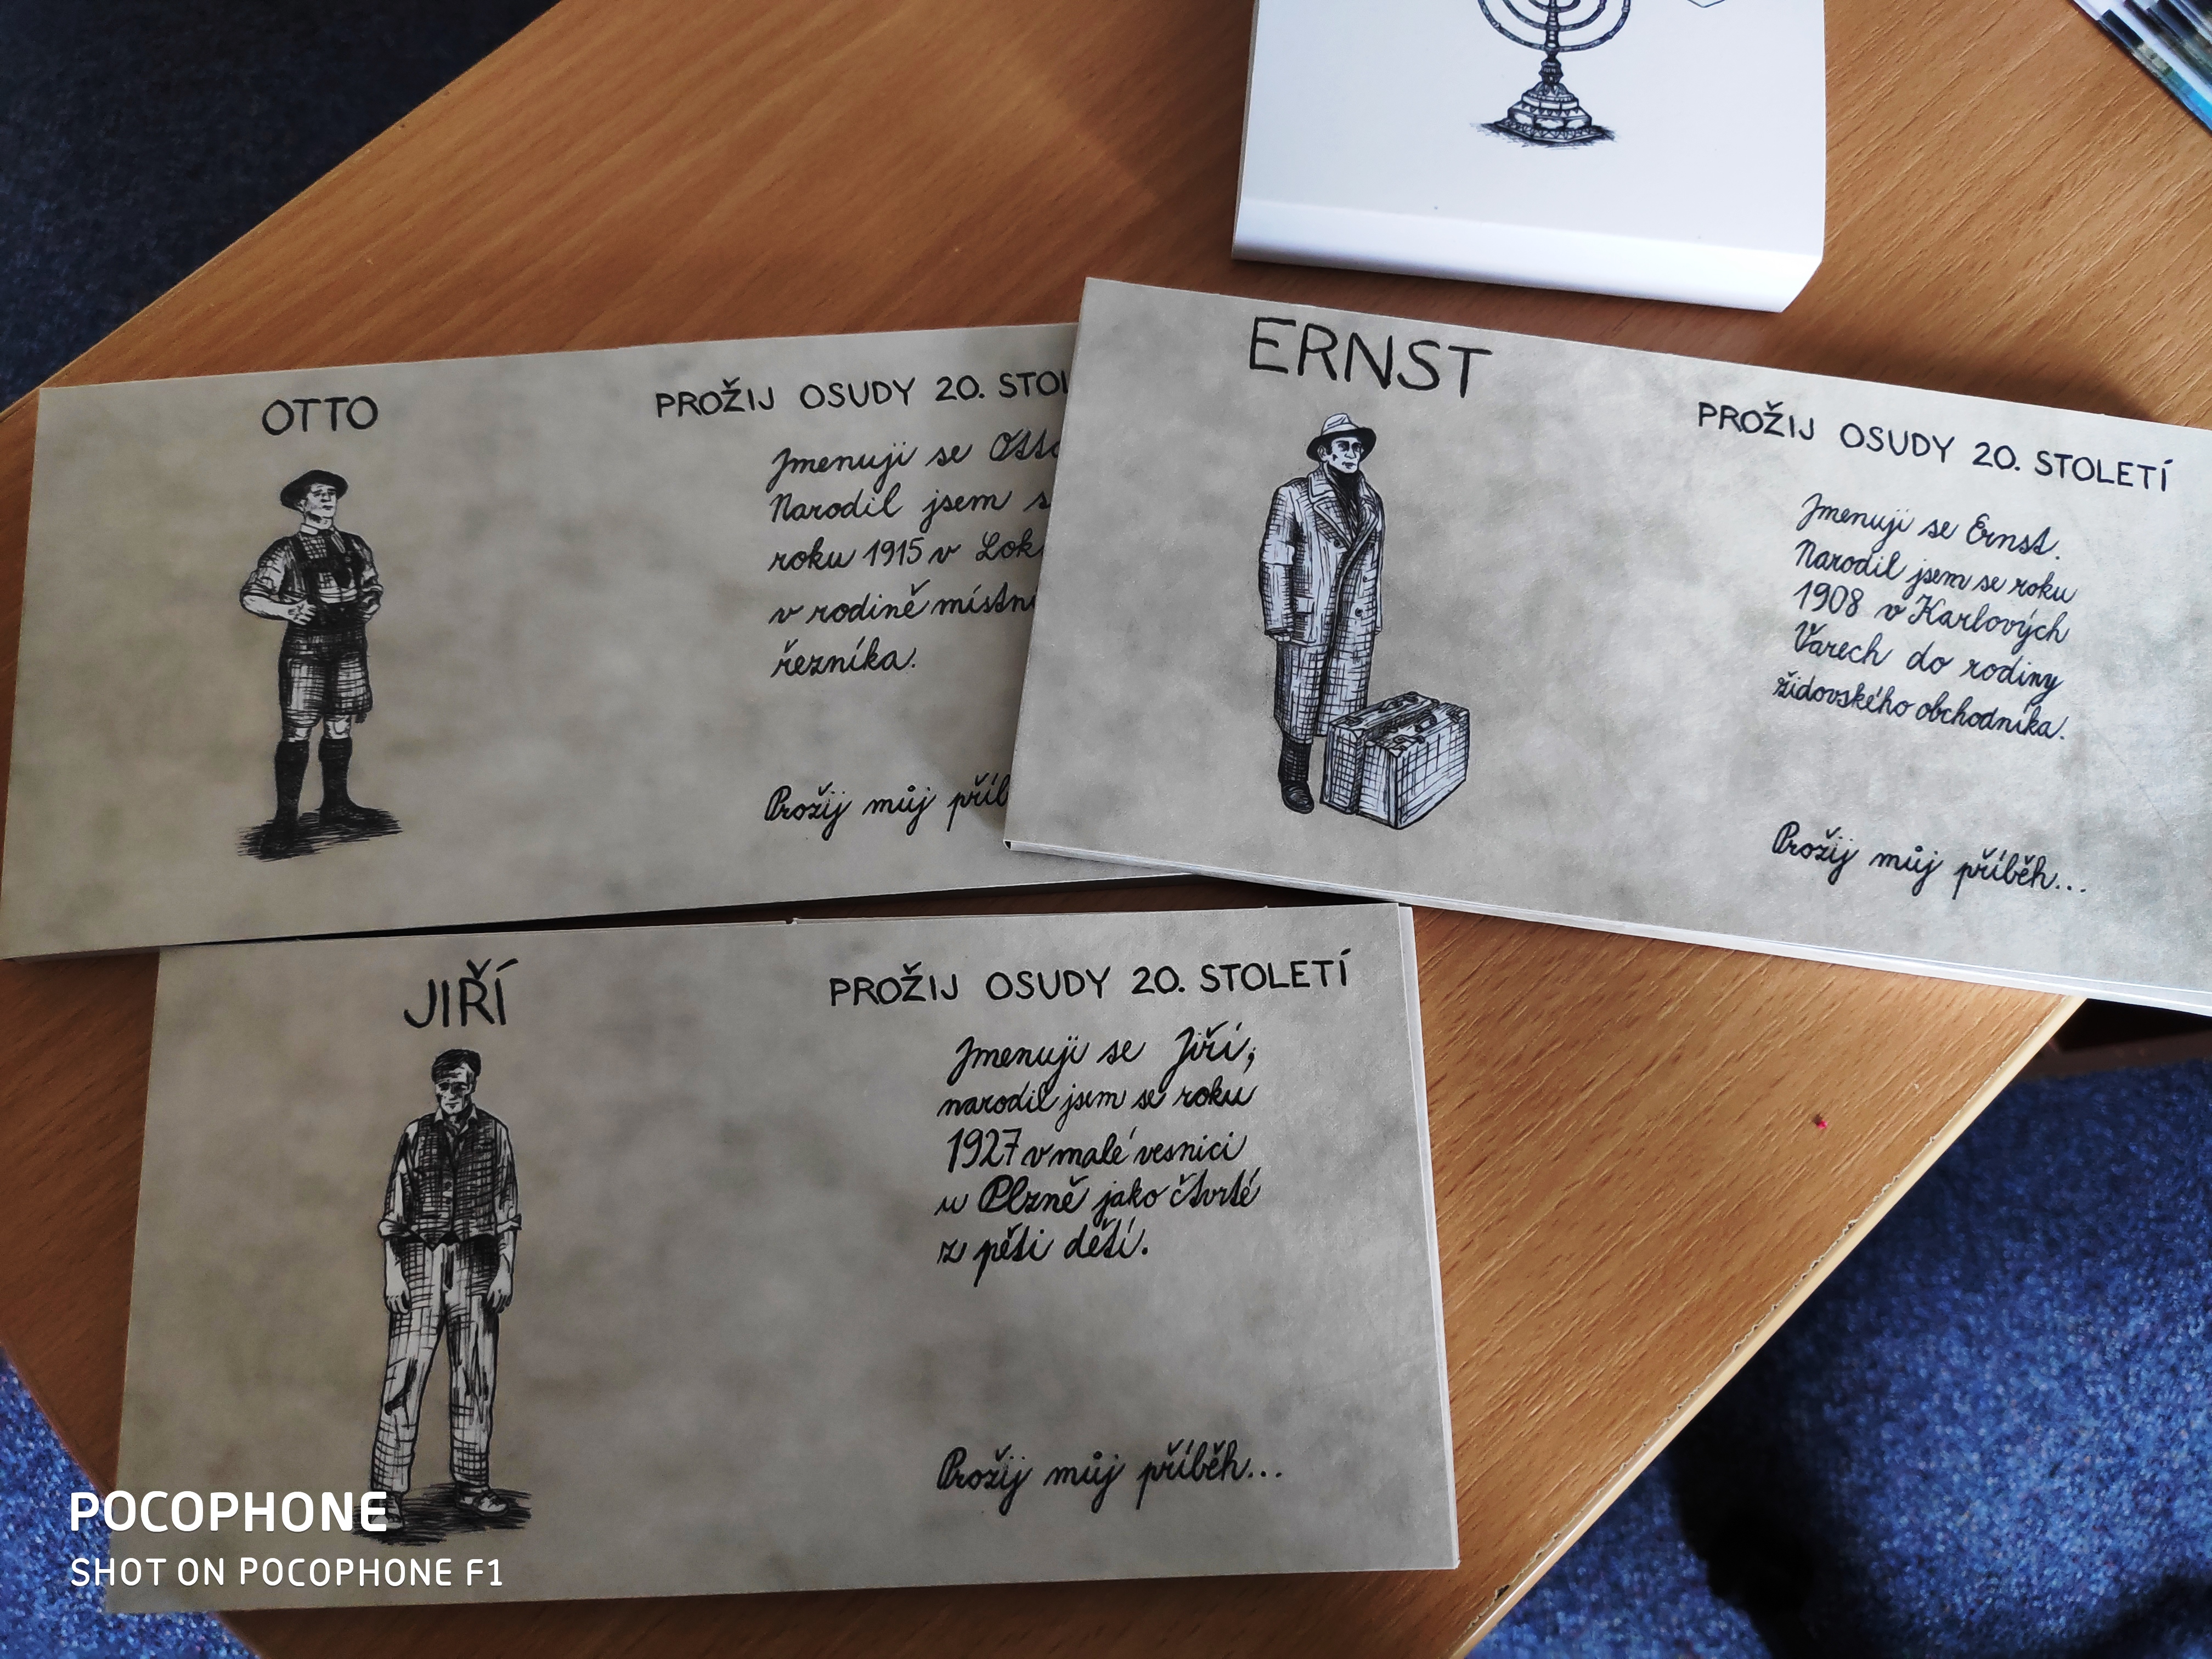 OTTO
PROŽIJ OSUDY 20.
Jmenuji se Otto
Narodil jsem
roku 1915 v
v rodině
řezníka.
Prožij můj
ERNST
PROŽIJ OSUDY 20. STOLETÍ
Jmenuji se Ernst.
Narodil jsem se roku
1908 v Karlových
Varech do rodiny
židovského obchodníka.
Prožij můj příběh...
JIŘÍ
PROŽIJ OSUDY 20. STOLETÍ
Jmenuji se Jiří,
narodil jsem se roku
1927 v malé vesnici
u Plzně jako čtvrté
z pěti dětí.
Prožij můj příběh...
POCOPHONE
SHOT ON POCOPHONE F1